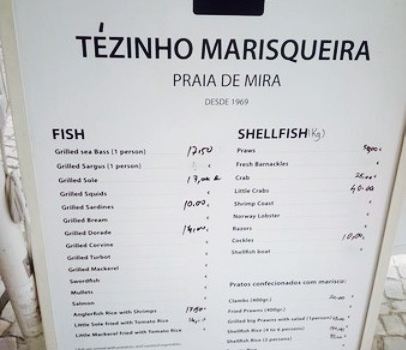 TÉZINHO MARISQUEIRA
PRAIA DE MIRA
DESDE 1969
FISH
Grilled sea Bass (1 person) 17,50
Grilled Sargus (1 person)
Grilled Sole 13,00 €
Grilled Squids
Grilled Sardines 10.00
Grilled Bream
Grilled Dorade
Grilled Corvine
Grilled Turbot
Grilled Mackerel
Swordfish
Mullets
Salmon
Anglerfish Rice with Shrimps
Little Sole fried with Tomato Rice
Little Mackerel fried with Tomato Rice
SHELLFISH (Kg)
Praws
Fresh Barnackles
Crab
Little Crabs 40.00
Shrimp Coast
Norway Lobster
Razors
Cockles 10,00
Shellfish boat
Pratos confecionados com marisco:
Clambs (400gr.)
Fried Prawns (400gr.)
Grilled big Prawns with salad (1person)
Shellfish Rice (4 to 6 persons)
Shellfish Rice (2 persons)